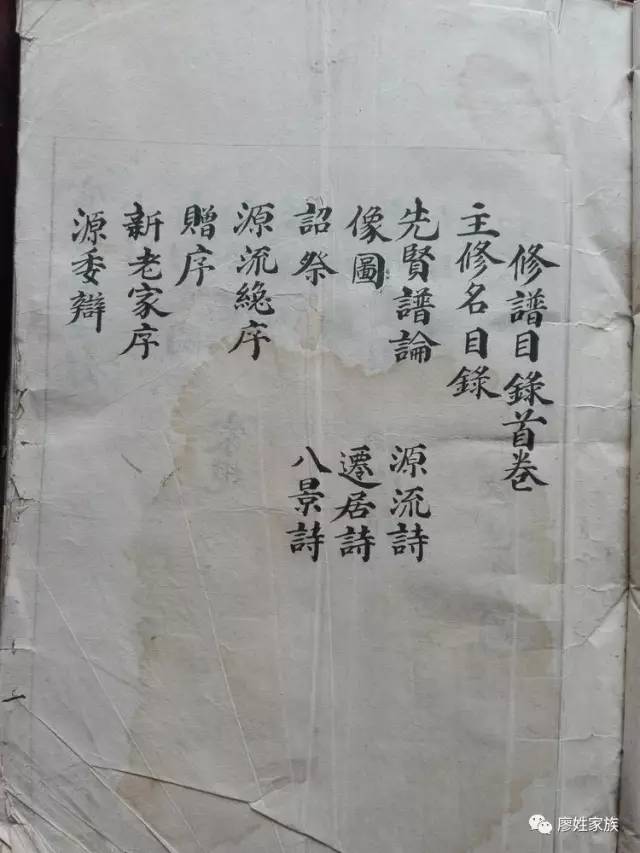 修譜目錄首卷
主修名目錄
先賢譜論
源流詩
像圖
遷居詩
詔祭
八景詩
源流緫序
贈序
新老家序
源委辯
十一
廖姓家族